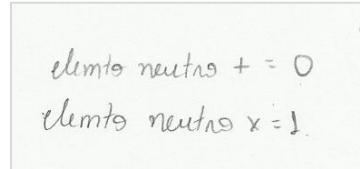 elemto neutro + = 0
elemto neutro x = 1.